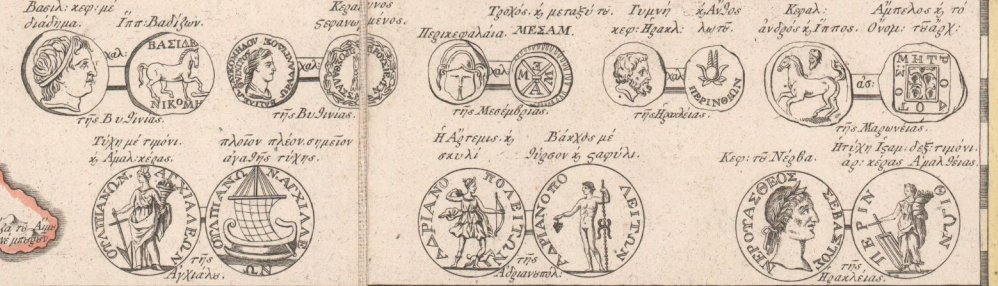 Βασιλ: κεφ: μὲ διάδημα.
Ἵππ: Βαδίζων.
χαλ:
ΒΑΣΙΛΕ
ΝΙΚΟΜΗ
τῆς Βυθινίας.
Κεραυνος
ϛεφανωμενος.
χαλ:
τῆς Βυθινίας.
Περικεφαλαία.
Τροχὸς. κ, μεταξύ τȣ. ΜΕΣΑΜ.
χαλ:
τῆς Μεσέμβριας.
Γυμνὴ κεφ: Ἡρακλ:
κ, Ἄνθος λωτȣ̃.
χαλ:
ΠΕΡΙΝΘΙΩΝ
τῆς Ἡρακλείας.
Κεφαλ: ἀνδρὸς κ, Ἵππος.
Ἄμπελος κ, τὸ Ὄνομ: τȣ̃ ἀρχ:
ἀσ:
ΜΗΤΡΟΔΟΤΟΣ
τῆς Μαρωνείας.
Τύχη μὲ τιμόνι. κ, Ἀμαλ: κέρας.
πλοῖον πλέον. σημεῖον ἀγαθῆς τύχης.
ΟΥΛΠΙΑΝΩΝ. ΑΓΧΙΑΛΕΩΝ
ΟΥΛΠΙΑΝΩΝ. ΑΓΧΙΑΛΕΩΝ
τῆς Ἀγχιάλȣ.
Ἡ Ἄρτεμις. κ, σκυλί
Βάκχος μὲ θύρσον κ, ϛαφύλι.
ΑΔΡΙΑΝΟΠΟΛΕΙΤΩΝ
ΑΔΡΙΑΝΟΠΟΛΕΙΤΩΝ
τῆς Ἀδριανȣπόλ:
Κεφ: τȣ̃ Νέρβα.
Η τύχη Ἱσαμ: δεξ: τιμόνι. ἀρ: κέρας Ἀμαλθείας.
ΝΕΡΟΥΑΣ ΘΕΟΣ ΣΕΒΑΣΤΟΣ
ΠΕΡΙΝΘΙΩΝ
τῆς Ἡρακλείας.